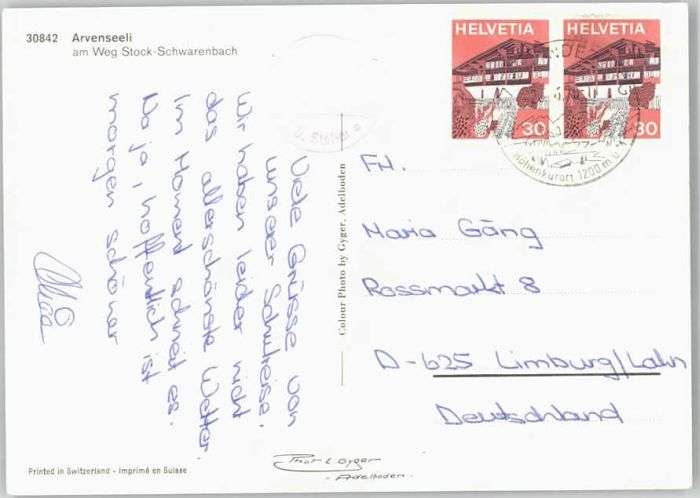 30842 Arvenseeli
am Weg Stock-Schwarenbach
HELVETIA
HELVETIA
30
30
Höhenkurort 1200 m ü.
Viele Grüsse von
unserer Schulreise.
Wir haben leider nicht
das allerschönste Wetter.
Im Moment schneit es.
Na ja, hoffentlich ist
morgen schöner
Colour Photo by Gyger, Adelboden
Frl.
Maria Gäng
Rossmarkt 8
D-625 Limburg/Lahn
Deutschland
Photo Gyger
Adelboden
Printed in Switzerland - Imprimé en Suisse